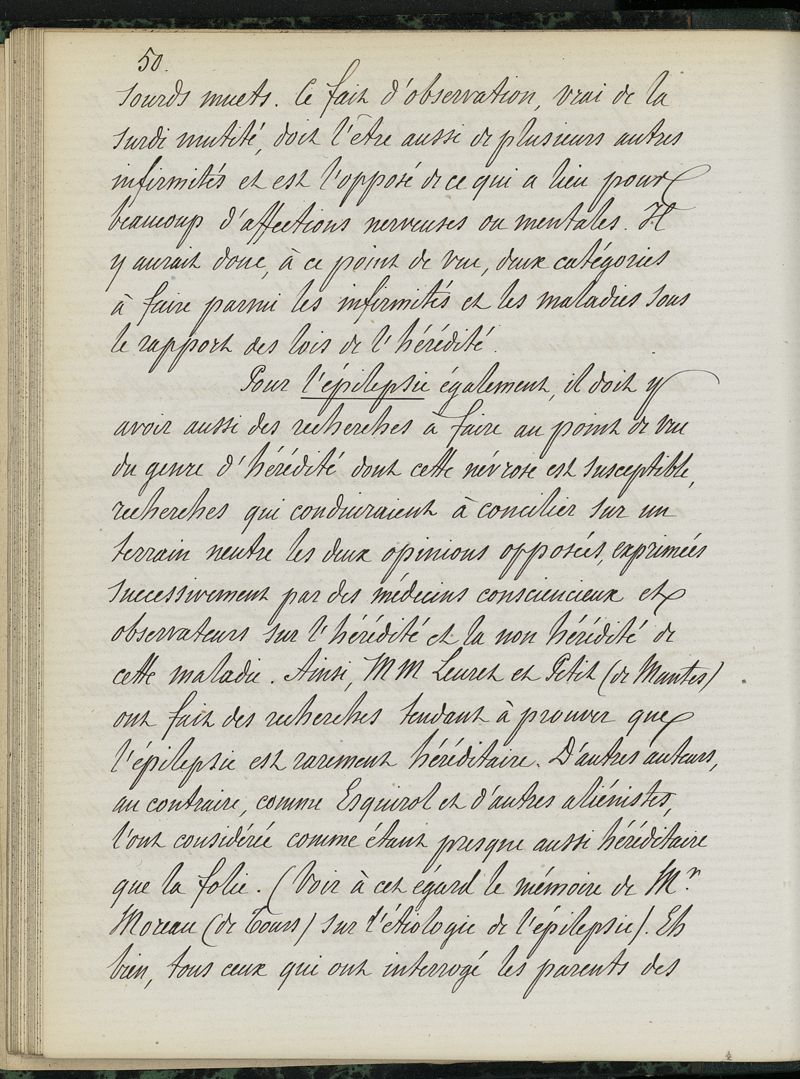 50.
sourds muets. Ce fait d'observation, vrai de la
surdi mutité, doit l'être aussi de plusieurs autres
infirmités et est l'opposé de ce qui a lieu pour
beaucoup d'affections nerveuses ou mentales. Il
y aurait donc, à ce point de vue, deux catégories
à faire parmi les infirmités et les maladies sous
le rapport des lois de l'hérédité.
Pour l'épilepsie également, il doit y
avoir aussi des recherches à faire au point de vue
du genre d'hérédité dont cette névrose est susceptible,
recherches qui conduiraient à concilier sur un
terrain neutre les deux opinions opposées, exprimées
successivement par des médecins consciencieux et
observateurs sur l'hérédité et la non hérédité de
cette maladie. Ainsi, MM Leuret et Petit (de Mantes)
ont fait des recherches tendant à prouver que
l'épilepsie est rarement héréditaire. D'autres auteurs,
au contraire, comme Esquirol et d'autres aliénistes,
l'ont considérée comme étant presque aussi héréditaire
que la folie. (Voir à cet égard le mémoire de Mr.
Moreau (de Tours) sur l'étiologie de l'épilepsie). Eh
bien, tous ceux qui ont interrogé les parents des